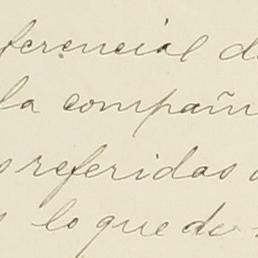 ferencial de
la compañ
s referidas
lo que de